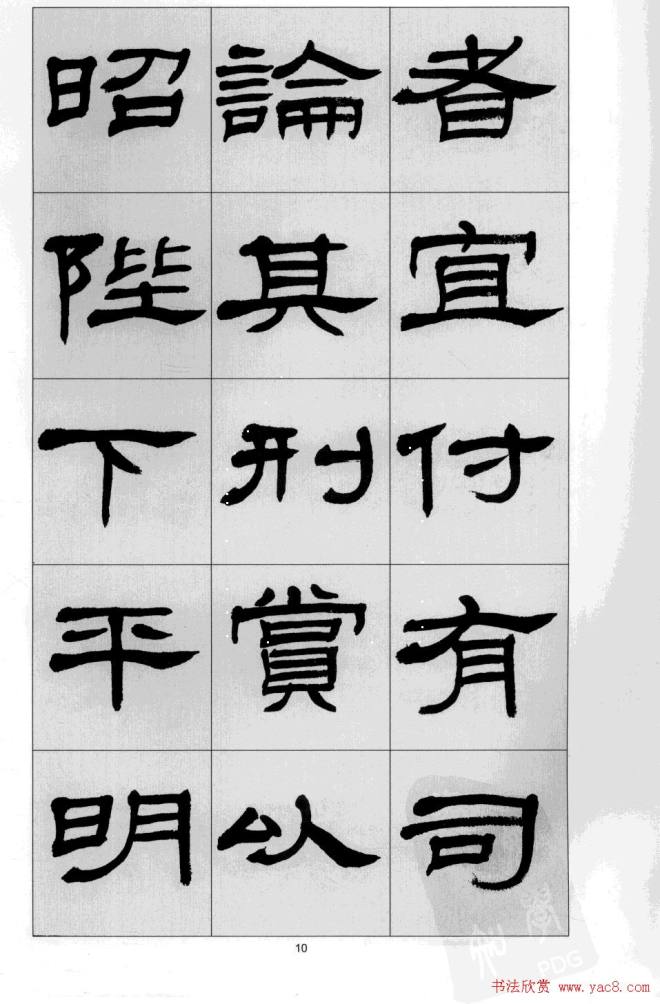 者宜付有司
論其刑賞以
昭陛下平明
10
PDG
书法欣赏 www.yac8.com